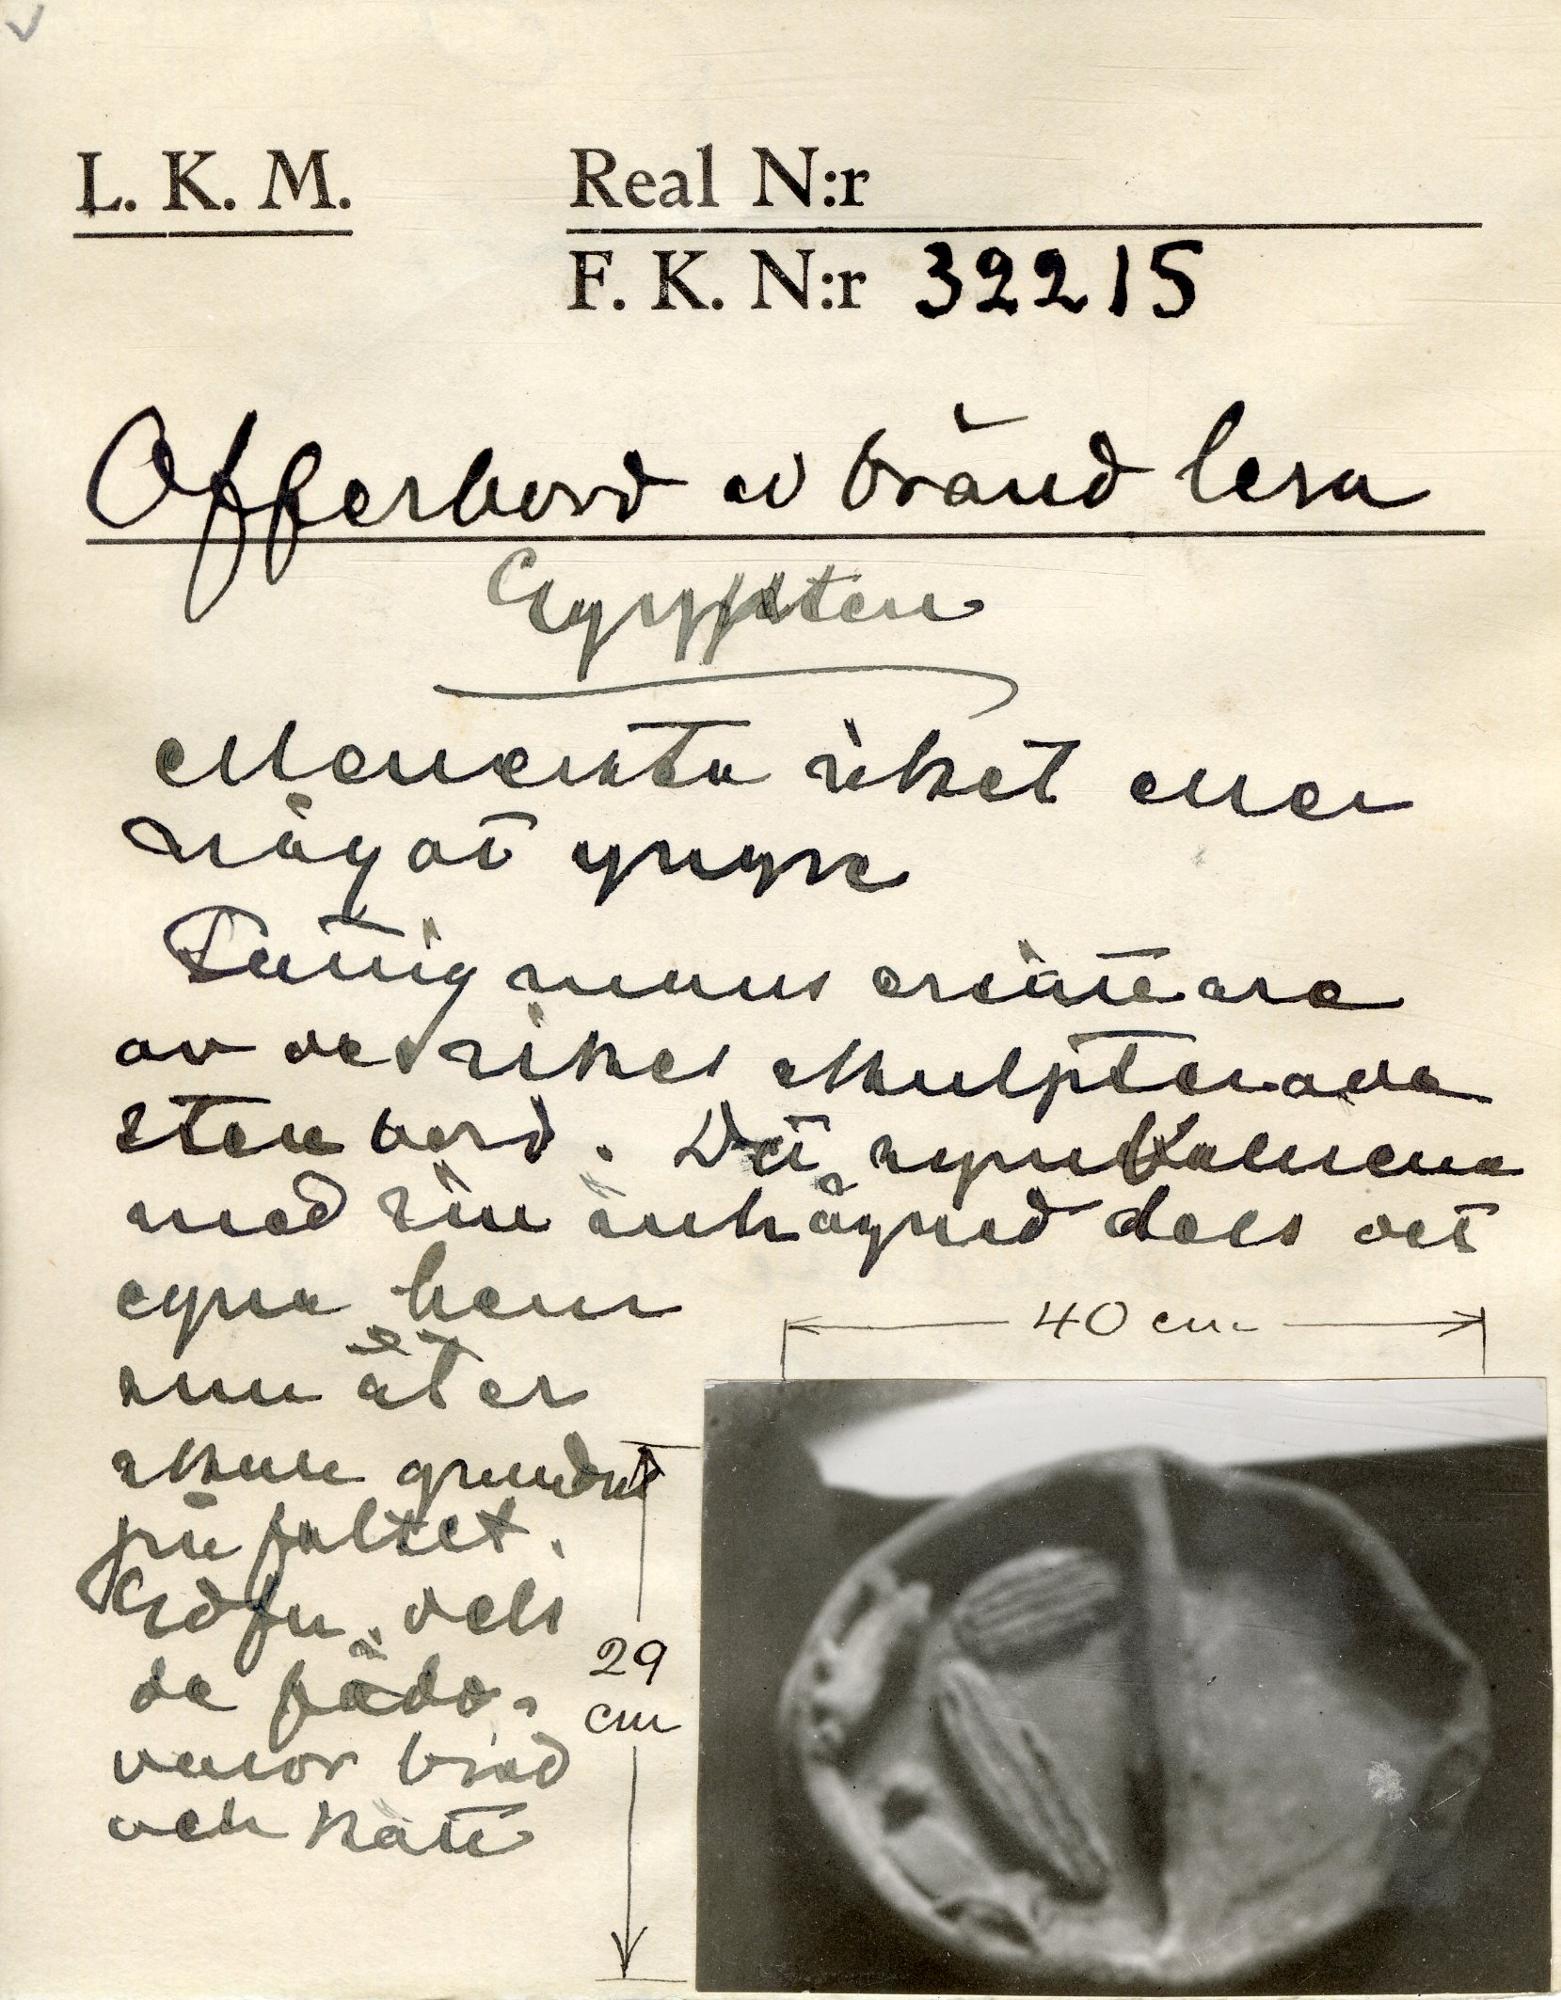 L. K. M.
Real N:r
F. K. N:r 32215
Offerbord av bränd lera
Egypten
Mellersta riket eller
något yngre
Fattig mans ersättare
av de rikes skulpterade
stenbord. Det symboliserar
med sin inhägnad dels det
egna hem
som åter
skulle grundas
på fältet.
Edfu, dels
de födo-
varor bröd
och kött
40 cm
29
cm